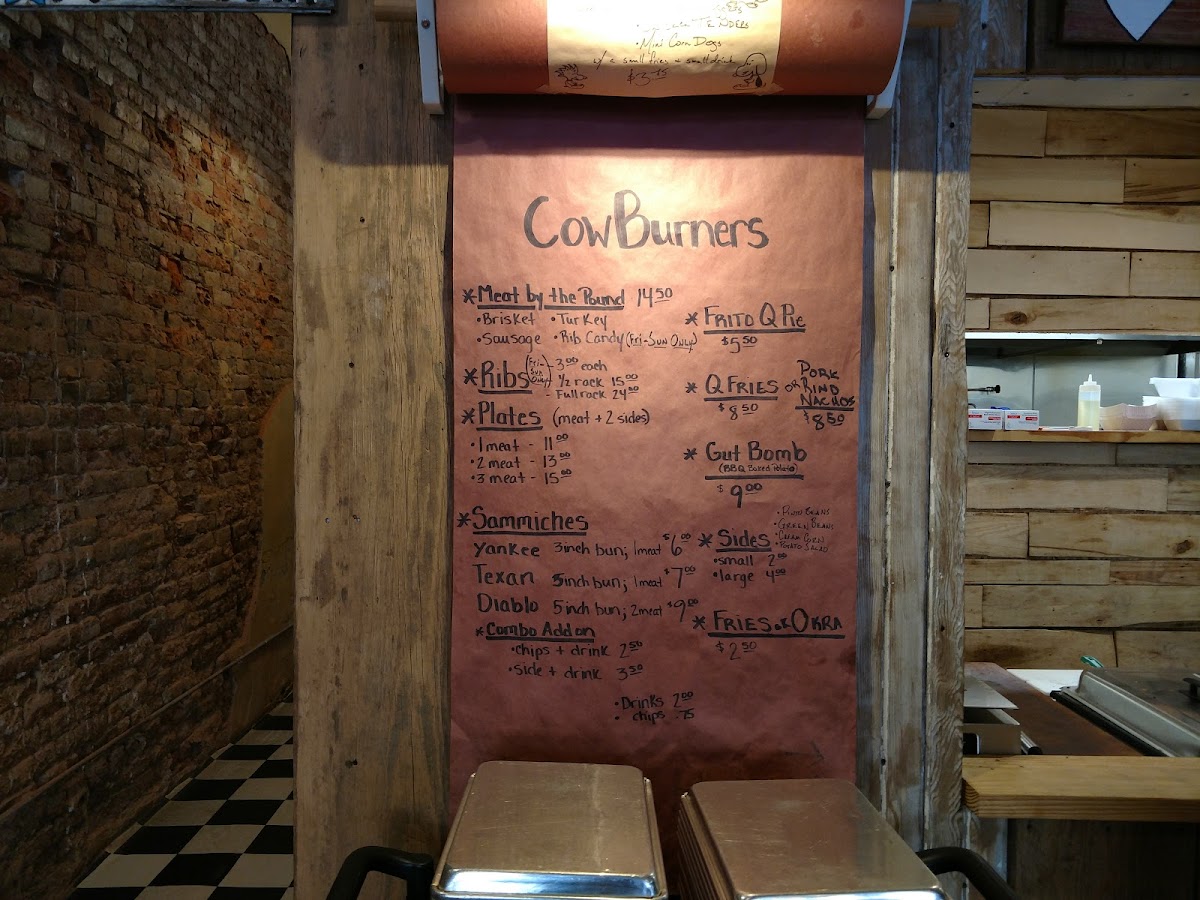 TENDERS
• Mini Corn Dogs
w/ a small fries + small drink
$3.75
CowBurners
* Meat by the Pound 14.50
• Brisket • Turkey
• Sausage • Rib Candy (Fri-Sun Only)
* Ribs (Fri-Sun Only) - 3.00 each
- 1/2 rack 15.00
- Full rack 24.00
* Plates (meat + 2 sides)
• 1 meat - 11.00
• 2 meat - 13.00
• 3 meat - 15.00
* Sammiches
Yankee 3inch bun; 1meat $6.00
Texan 5inch bun; 1meat $7.00
Diablo 5inch bun; 2meat $9.00
* Combo Add on
• chips + drink 2.50
• side + drink 3.50
• Drinks 2.00
• chips .75
* FRITO Q PIE
$5.50
* Q FRIES OR PORK RIND NACHOS
$8.50 $8.50
* Gut Bomb
(BBQ Baked Potato)
$9.00
• PINTO BEANS
• GREEN BEANS
• CREAM CORN
• POTATO SALAD
* Sides
• small 2.00
• large 4.00
* FRIES or OKRA
$2.50